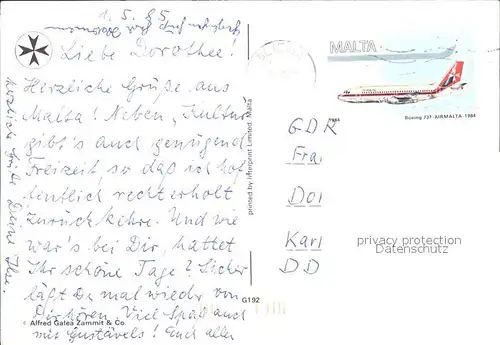 1. 5. 85
Liebe Dorothee!
Herzliche Grüße aus
Malta! Neben "Kultur"
gibt's auch genügend
Freizeit, so daß ich hof-
fentlich recht erholt
zurückkehre. Und wie
war's bei Dir, hattet
Ihr schöne Tage? Sicher
läßt Du mal wieder von
Dir hören. Viel Spaß auch
mit Gustävels! Euch allen
herzlich Grüße Deine Ilse.
printed by Interprint Limited, Malta
© Alfred Galea Zammit & Co.
G192
MALTA
Boeing 737 AIRMALTA 1984
GDR
Frau
Dor
Karl
DD
privacy protection
Datenschutz